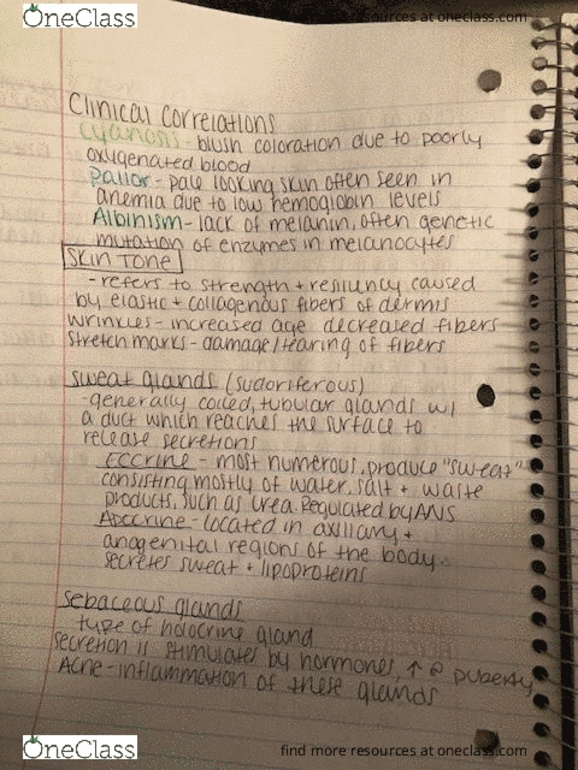 OneClass
resources at oneclass.com
Clinical Correlations
Cyanosis - bluish coloration due to poorly
oxygenated blood
Pallor - pale looking skin often seen in
anemia due to low hemoglobin levels
Albinism - lack of melanin, often genetic
mutation of enzymes in melanocytes
Skin Tone
- refers to strength + resiliency caused
by elastic + collagenous fibers of dermis
wrinkles - increased age decreased fibers
Stretch marks - damage/tearing of fibers
sweat glands (sudoriferous)
- generally coiled, tubular glands w/
a duct which reaches the surface to
release secretions
Eccrine - most numerous, produce "sweat"
consisting mostly of water, salt + waste
products, such as urea. Regulated by ANS
Apocrine - located in axillary +
anogenital regions of the body.
secretes sweat + lipoproteins
sebaceous glands
type of holocrine gland
secretion is stimulates by hormones, ↑ @ puberty
Acne - inflammation of these glands
OneClass
find more resources at oneclass.com